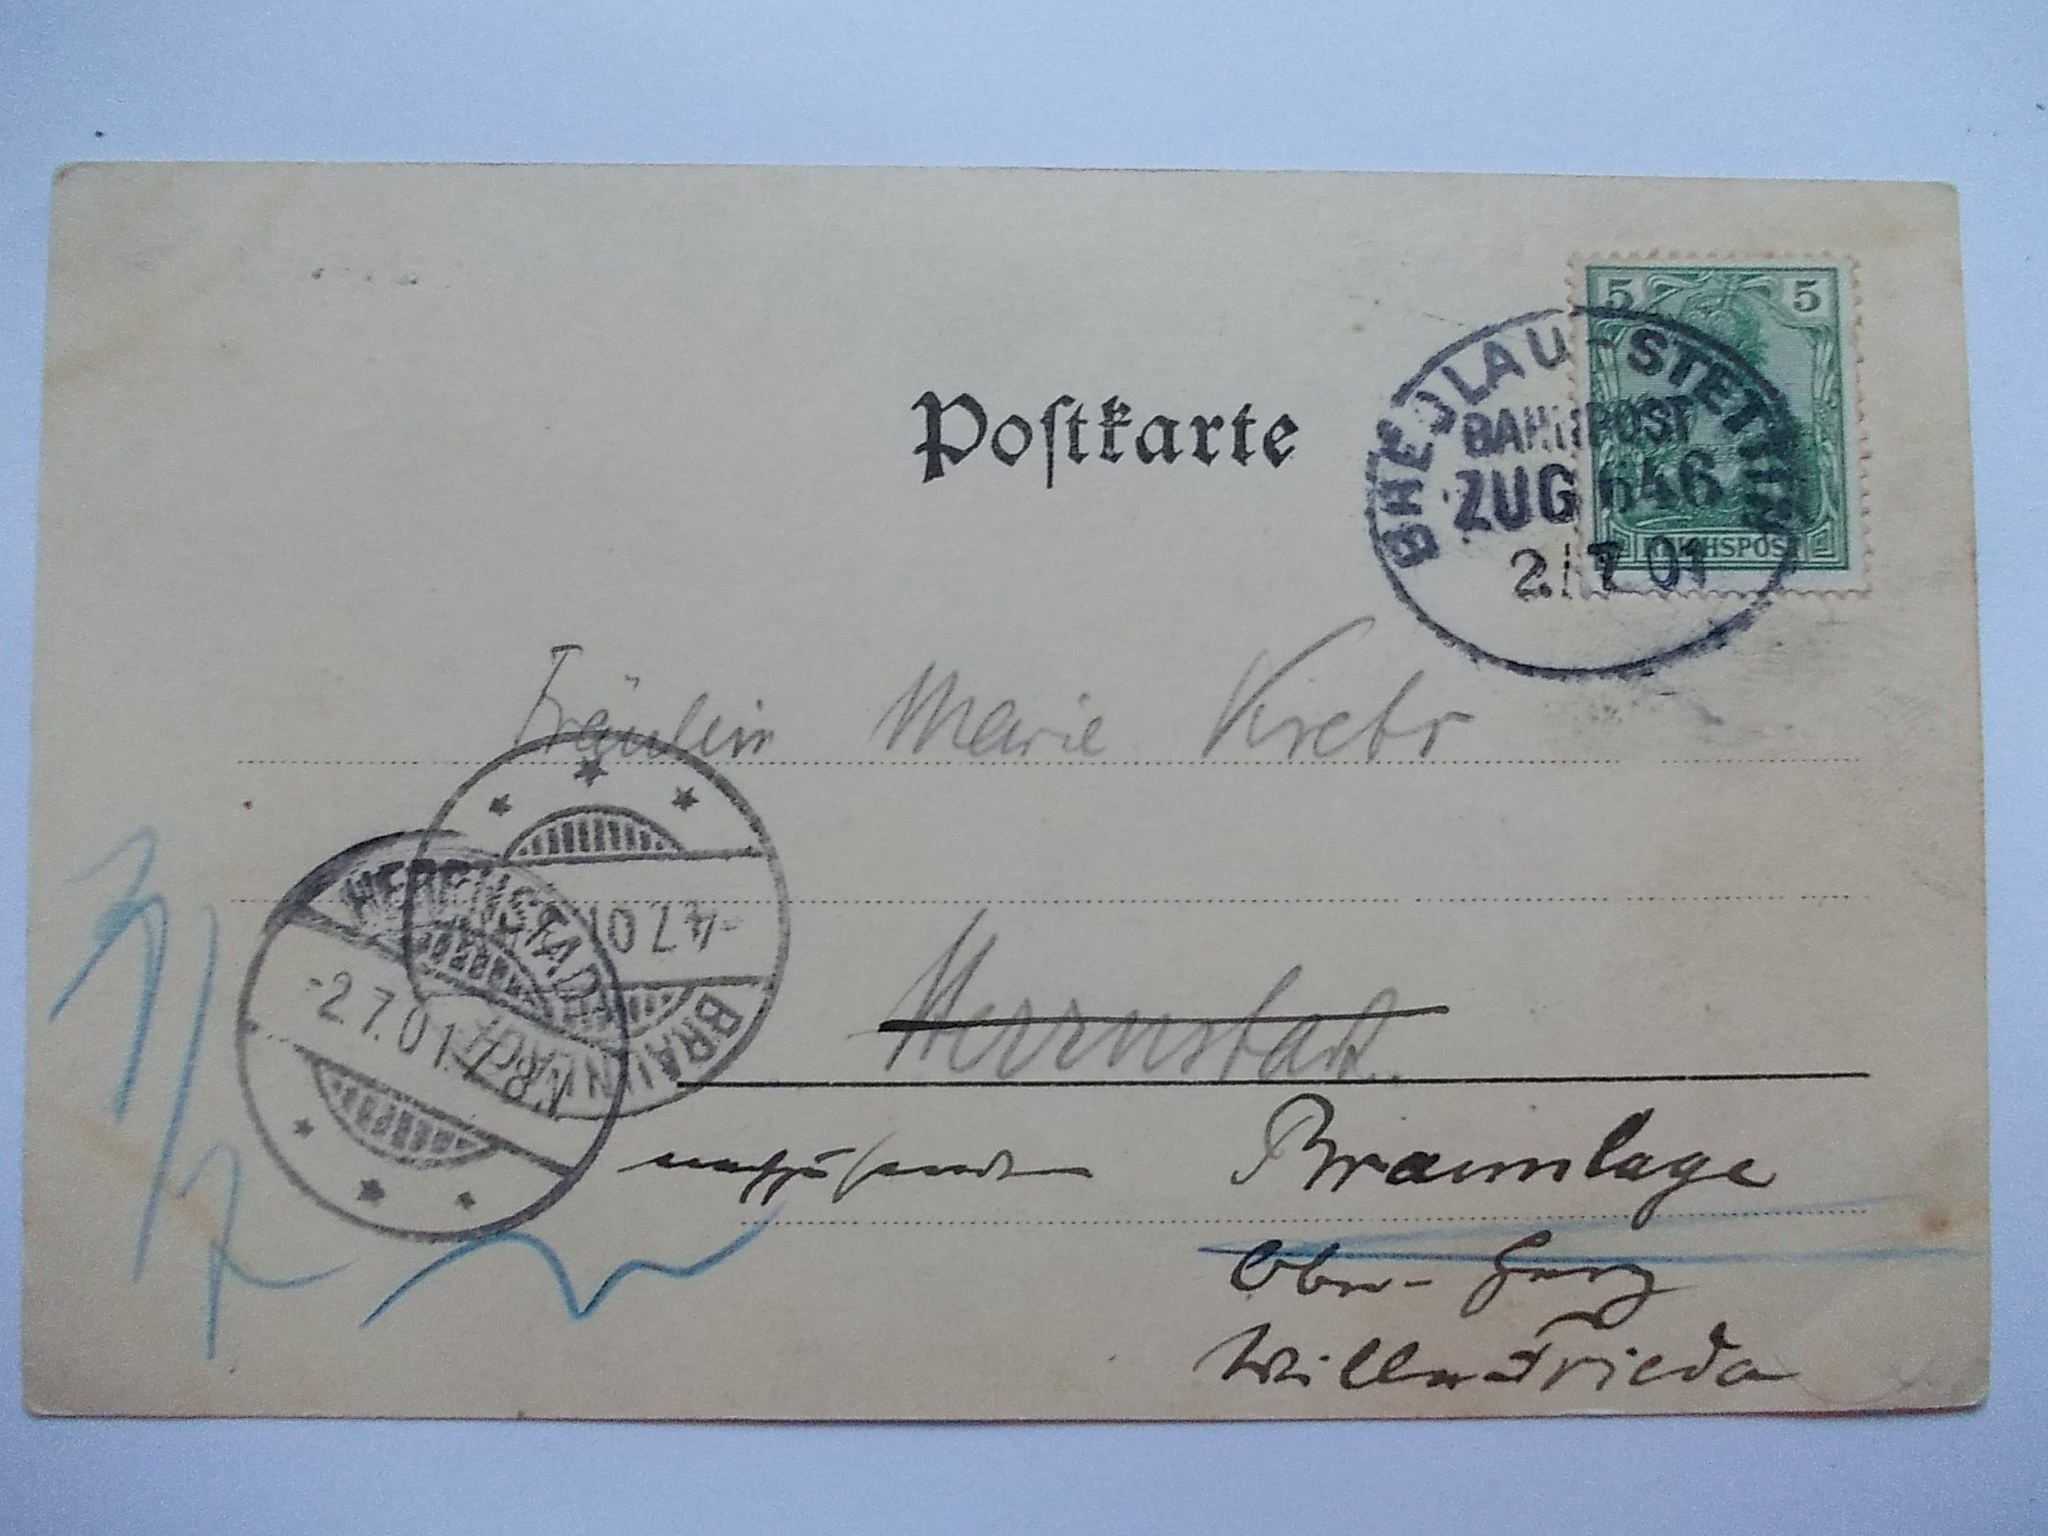 5 5
BRESLAU-STETTIN
BAHNPOST
ZUG 646
2 7 01
REICHSPOST
Postkarte
Fräulein Marie Krebs
HERRNSTADT
-2.7.01.
-4.7.01
BRAUNLAGE
Herrnstadt
nachzusenden Braunlage
Ober-Harz
Villa Frieda